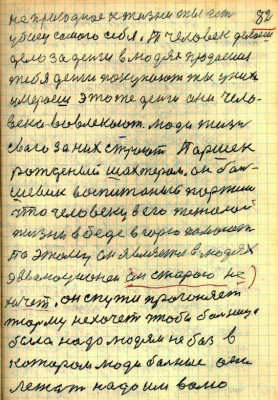 не пригодное к жизни ты ест 82
убиец самого себя. А человек делает
дело за деньги в людях продаеш
тебя деньги покупают ты у них
умераеш это же деньги они чело-
века вовлекают. люди жизн
свого за них строют Паршек
рожденый шахтером, он бол-
шевик воспитаный партии
что человеку в его тяжолой
жизни в беде в горю помогать
По этому он является в людях
эвалюционер он старого не
хочет, он с пути прогоняет
тюрму не хочет чтоби больница
била надо людям не без в
котором люди больние они
лежат надо им вамо